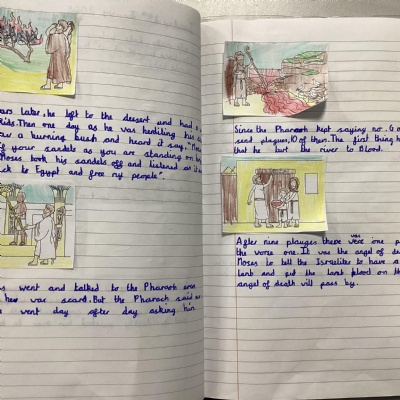 ars later, he left to the desert and had a
kids. Then one day as he was herding his
aw a burning bush and heard it say, "Mo
ff your sandels as you are standing on ho
Moses took his sandels off and listened as it
ck to Egypt and free my people".
s went and talked to the Pharaoh even
hew was scard. But the Pharaoh said no
went day after day asking him
Since the Pharaoh kept saying no. G
send plagues, 10 of them. The first thing h
that he turt the river to Blood.
After nine plauges there was one
the worse one. It was the angel of de
Moses to tell the Israelites to have a
lamb and put the lamb blood on th
angel of death will pass by.